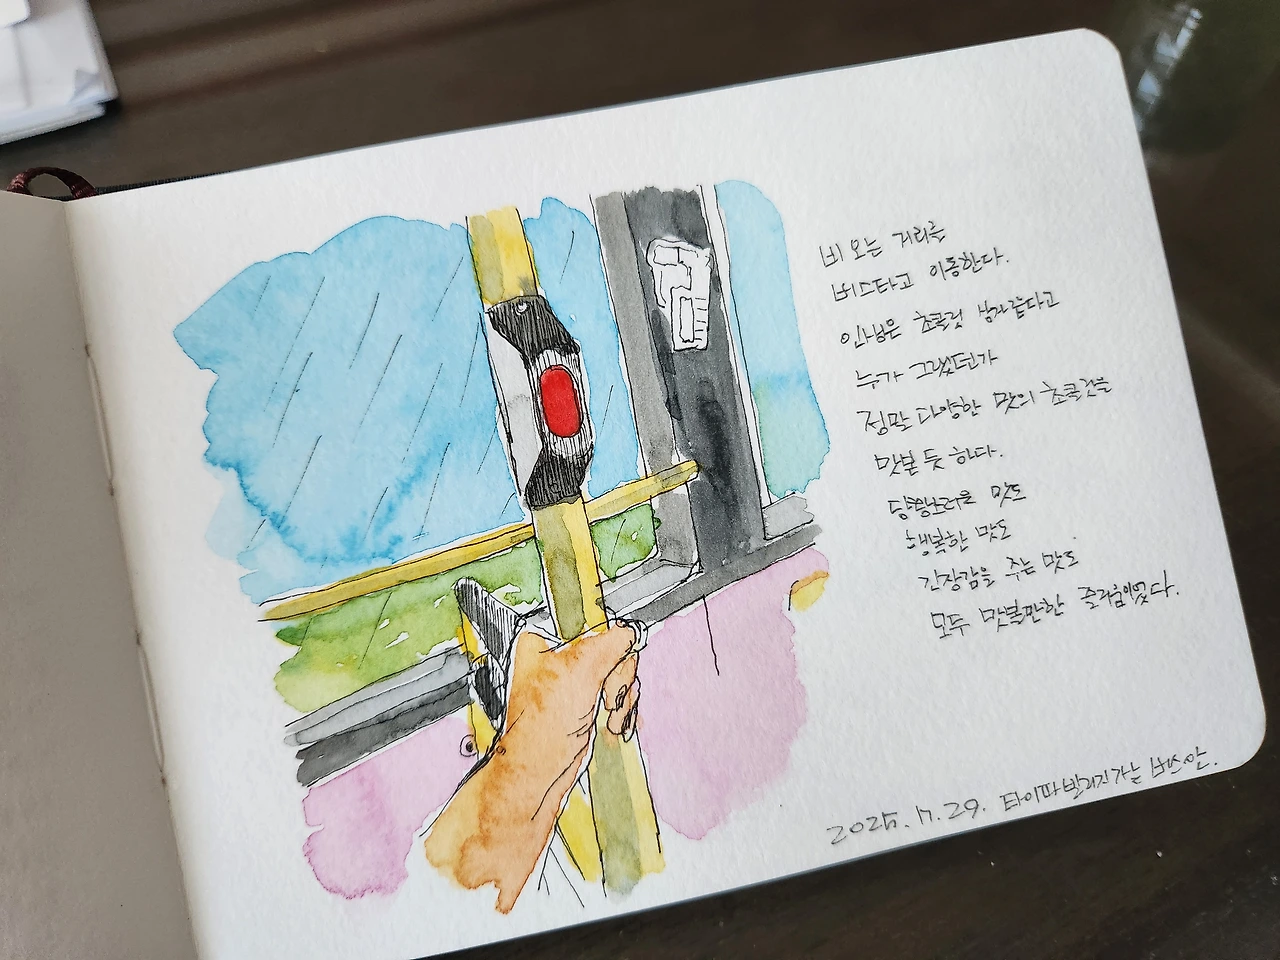 비 오는 거리를
버스타고 이동한다.
인생은 초콜릿 상자같다고
누가 그랬던가
정말 다양한 맛의 초콜릿을
맛본 듯 하다.
당황스러운 맛도
행복한 맛도
긴장감을 주는 맛도
모두 맛볼만한 즐거움이었다.
2025.7.29. 타이따빌리지 가는 버스안.